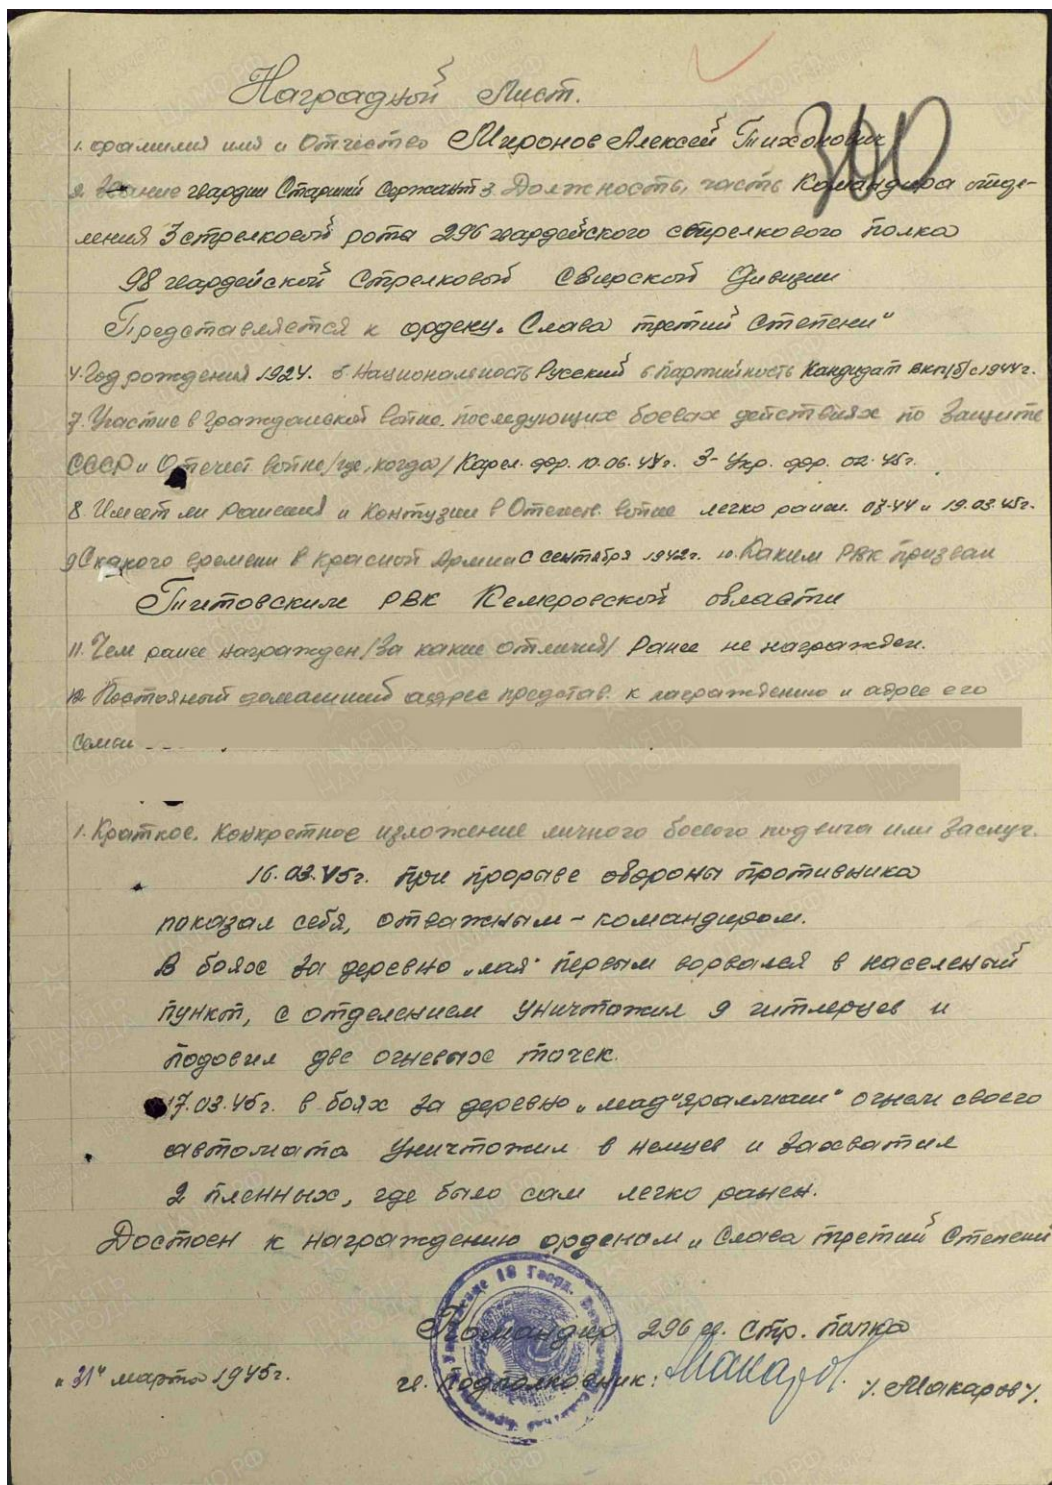 Наградной Лист.
300
1. фамилия имя и Отчество Миронов Алексей Тихонович
2. Звание гвардии Старший Сержант 3 Должность, часть Командира отде-
ления 3 стрелковой рота 296 гвардейского стрелкового полка
98 гвардейской Стрелковой Свирской Дивизии
Представляется к ордену „Слава третий Степени"
4. Год рождения 1924. 5 Национальность Русский 6 партийность Кандидат ВКП/б/ с 1944г.
7. Участие в гражданской войне. последующих боевых действиях по Защите
СССР и Отечест войне /где, когда/ Карел. фр. 10.06.44г. 3-Укр. фр. 02.45г.
8. Имеет ли ранения и Контузии в Отечеств. войне легко ранен. 07.44 и 19.03.45г.
9 С какого времени в Красной Армии С сентября 1942г. 10. Каким РВК призван
Титовским РВК Кемеровской области
11. Чем ранее награжден /За какие отличия/ Ранее не награжден.
12. Постоянный домашний адрес представ. к награждению и адрес его
семьи
1. Краткое. Конкретное изложение личного боевого подвига или Заслуг.
16.03.45г. при прорыве обороны противника
показал себя, отважным – командиром.
В боях за деревню „лая" первым ворвался в населеный
пункт, с отделением уничтожил 9 гитлерцев и
подовил две огневых точек.
17.03.45г. в боях за деревню „мад"яралмаш" огнем своего
автомата уничтожил в немцев и захватил
2 пленных, где было сам легко ранен.
Достоен к награждению орденам „Слава третий Степени
Командир 296 гв. Стр. полка
„31" марта 1945г. гв. подполковник: Макаров /. Макаров /.